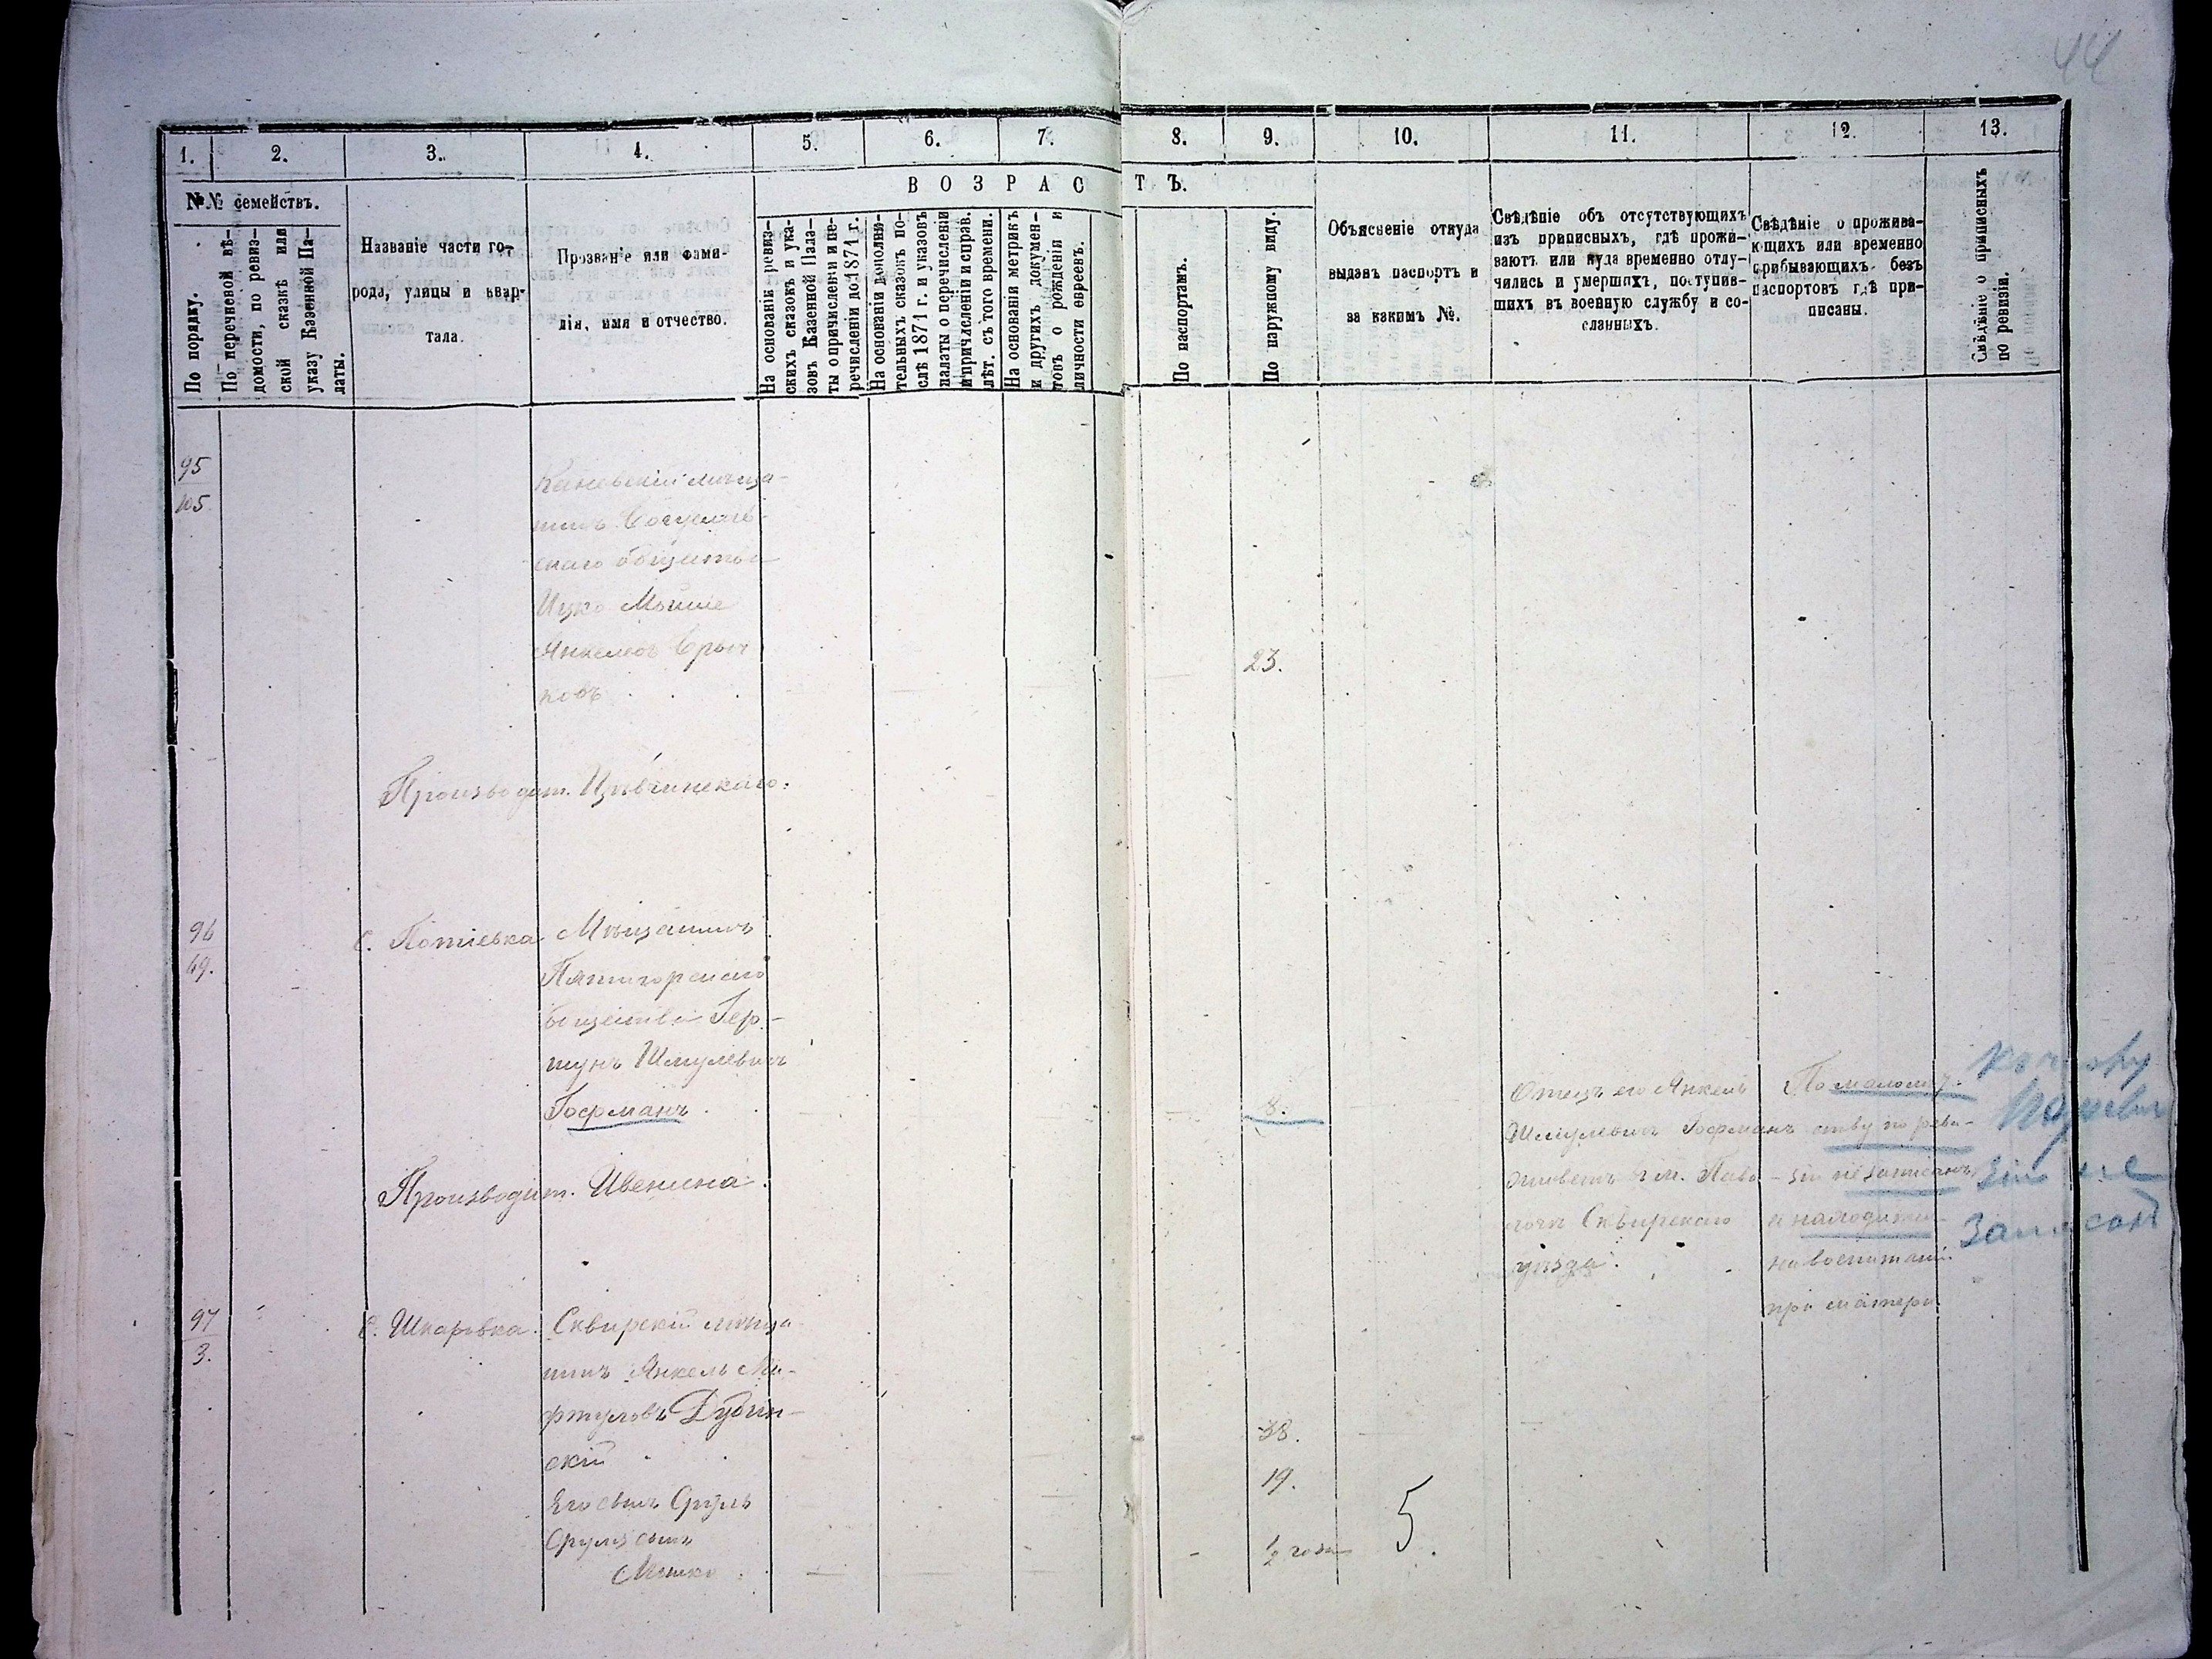 44
1. 2. 3. 4. 5. 6. 7. 8. 9. 10. 11. 12. 13.
№№ семействъ.
По порядку.
По перечневой вѣ-
домости, по ревиз-
ской сказкѣ или
указу Казенной Па-
латы.
Названіе части го-
рода, улицы и квар-
тала.
Прозваніе или фами-
лія, имя и отчество.
ВОЗРАСТЪ.
На основаніи ревиз-
скихъ сказокъ и ука-
зовъ Казенной Пала-
ты о причисленіи и пе-
речисленіи до 1871 г.
На основаніи дополни-
тельныхъ сказокъ по-
слѣ 1871 г. и указовъ
палаты о перечисленіи
и причисленіи и справ.
лѣт. съ того времени.
На основаніи метрикъ
и другихъ докумен-
товъ о рожденіи и
личности евреевъ.
По паспортамъ.
По наружному виду.
Объясненіе откуда
выданъ паспортъ и
за какимъ №.
Свѣдѣніе объ отсутствующихъ
изъ приписныхъ, гдѣ прожи-
ваютъ или куда временно отлу-
чились и умершихъ, поступив-
шихъ въ военную службу и со-
сланныхъ.
Свѣдѣніе о прожива-
ющихъ или временно
прибывающихъ безъ
паспортовъ гдѣ при-
писаны.
Свѣдѣніе о приписныхъ
по ревизіи.
95
105
Каневскій мѣща-
нинъ
скаго общества
Ицко Мошко
Янкелевъ
ковъ
23.
Производит.
96
69.
с. Потіевка
Мѣщанинъ
Пятигорскаго
общества Гер-
шунъ Шмулевичъ
Гофманъ
8.
Отецъ его Янкель
Шмулевичъ Гофманъ
живетъ въ м. Паво-
лочи Сквирскаго
уѣзда.
По малолѣт-
ству по реви-
зіи не записанъ
и находится
на воспитаніи
при матери.
зіи не
Записанъ
Производит. Ивенина.
97
3.
с. Шкаровка.
Сквирскій мѣща-
нинъ Янкель
Дубин-
скій
38.
Его сынъ Сруль
19.
Сруля сынъ
Мошко
½ года
5.